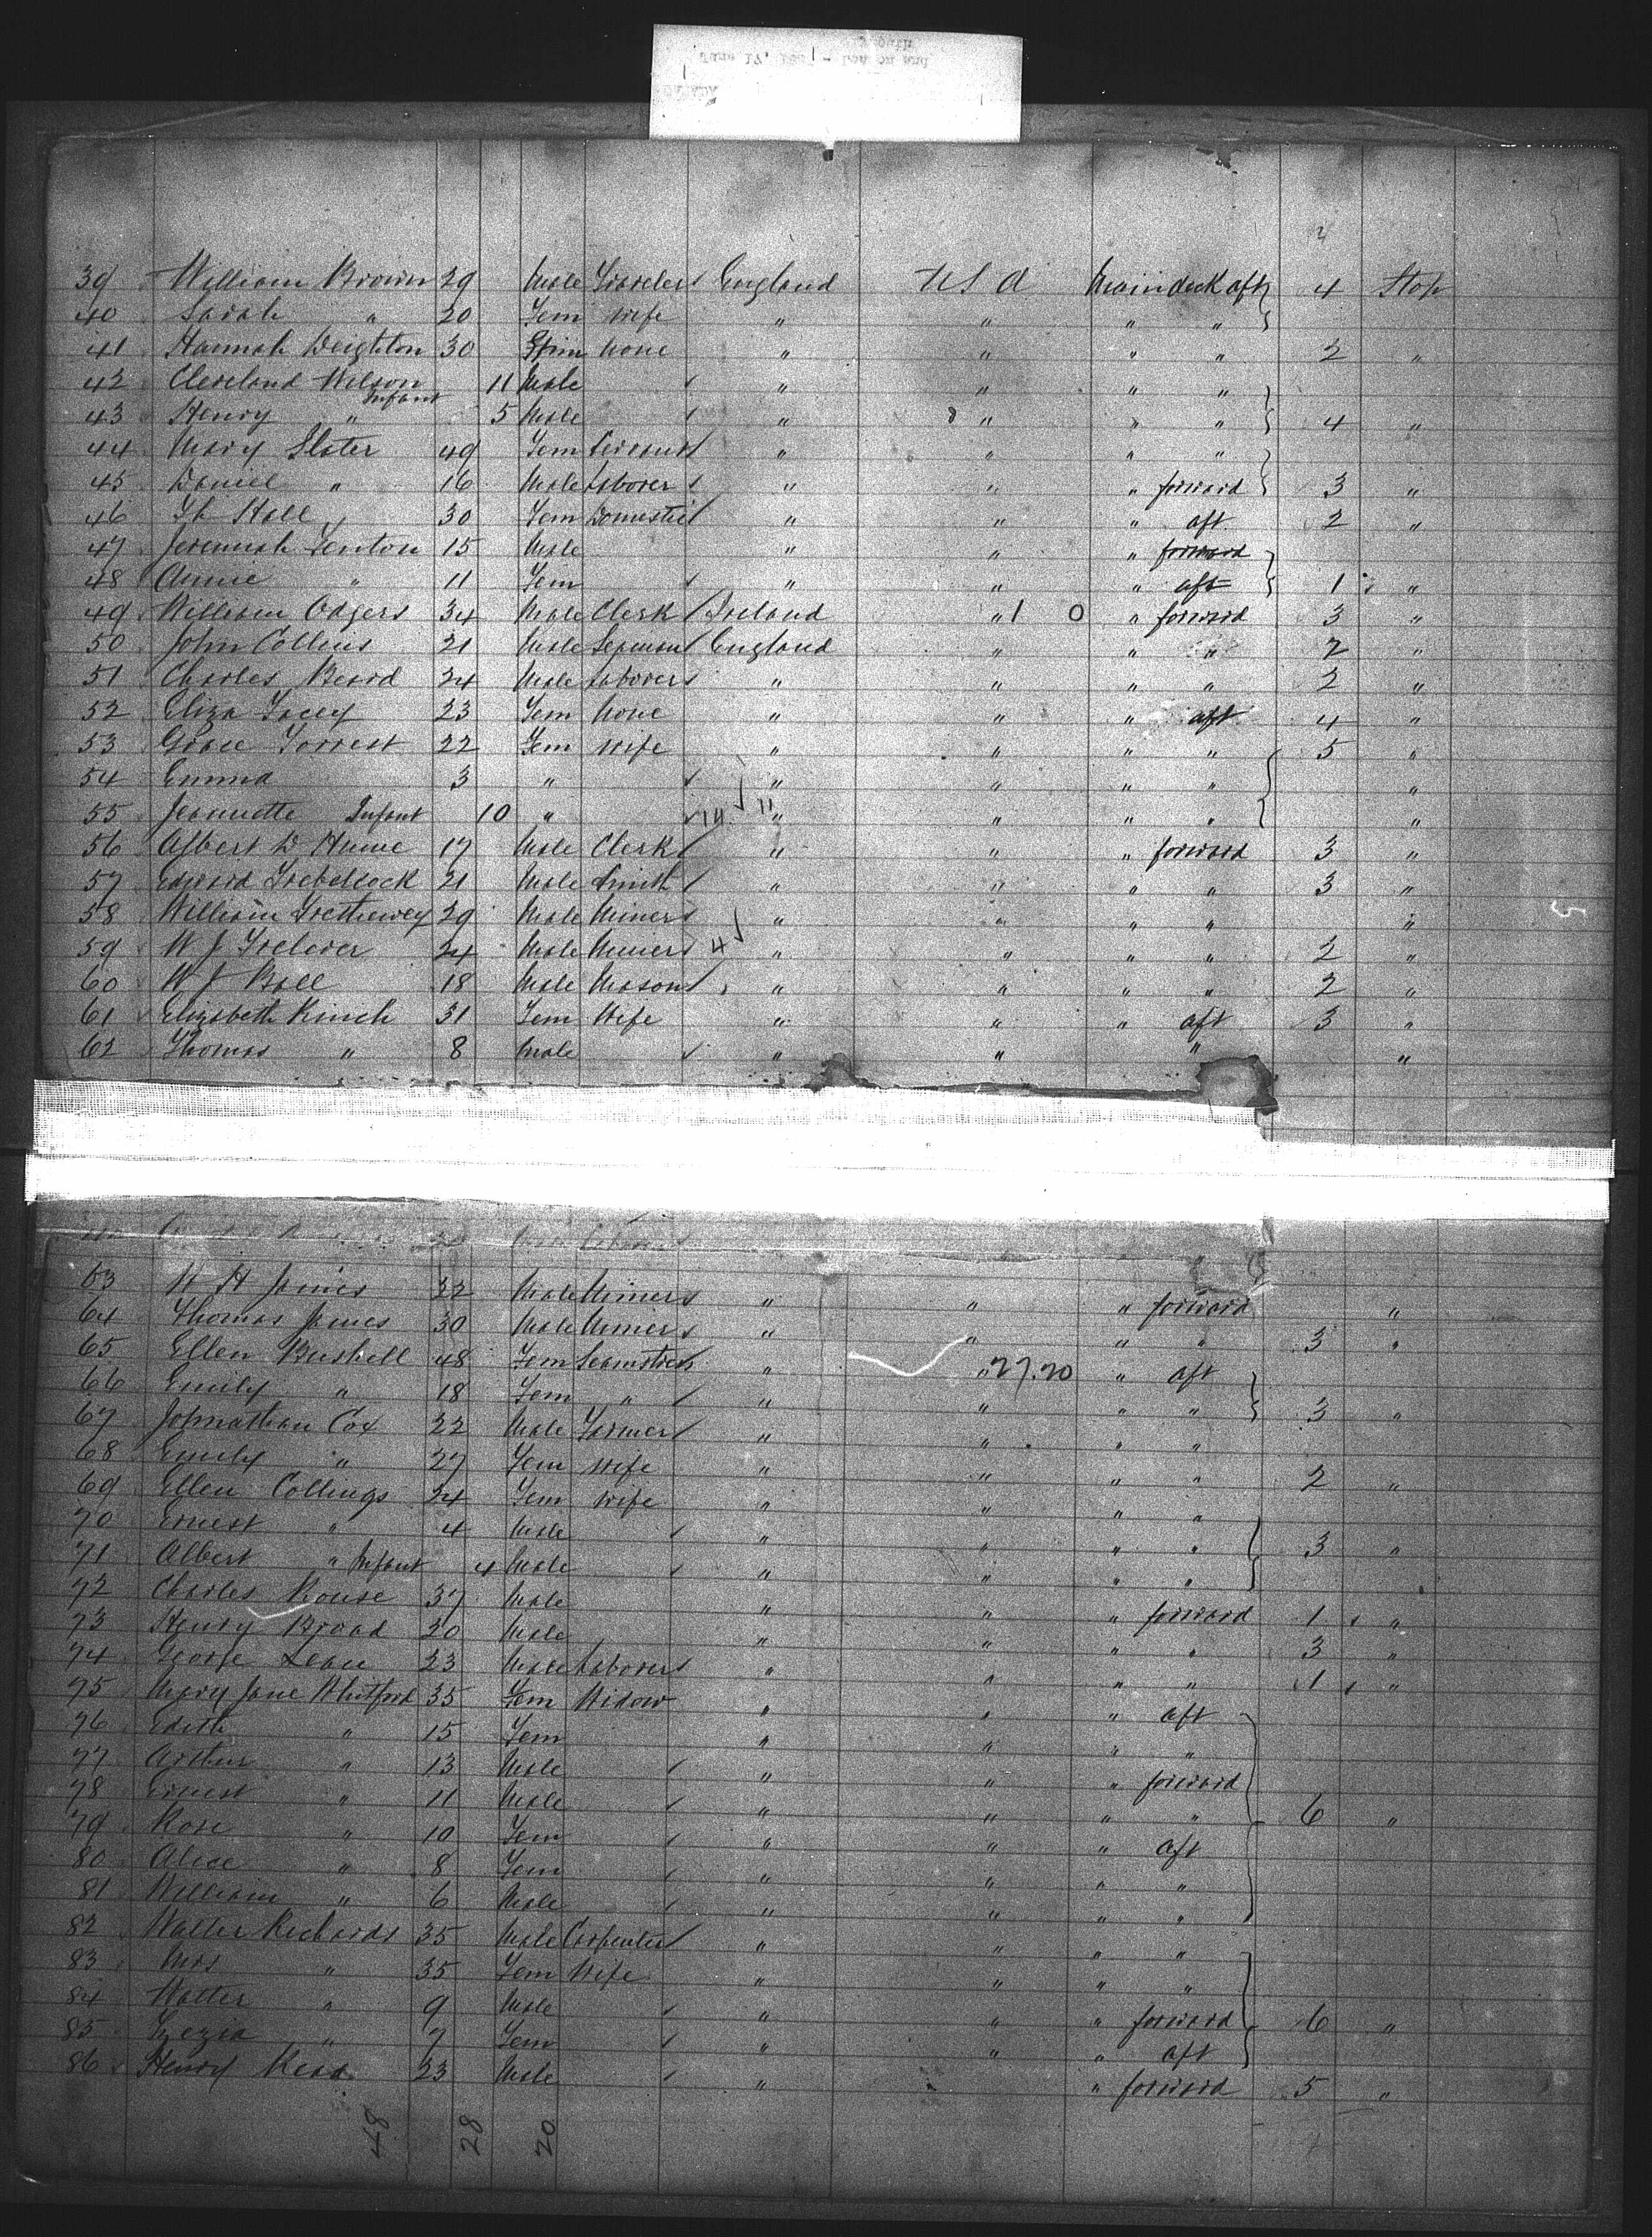 4
39 William Brown 29 Male Traveler England U S A Main deck aft 4 Stop
40 Sarah " 20 Fem Wife " " " "
41 Hannah Deighton 30 Spin None " " " " 2 "
42 Cleveland Wilson Infant 11 Male " " " "
43 Henry " 5 Male " " " " 4 "
44 Mary Slater 49 Fem Servant " " " "
45 Daniel " 16 Male Laborer " " " forward 3 "
46 Hall 30 Fem Domestic " " " aft 2 "
47 Jeremiah Fenton 15 Male " " " forward
48 Annie " 11 Fem " " " aft 1 "
49 William Odgers 34 Male Clerk Ireland " 1 0 " forward 3 "
50 John Collins 21 Male Seaman England " " " 2 "
51 Charles Beard 24 Male Laborer " " " " 2 "
52 Eliza Facey 23 Fem None " " " aft 4 "
53 Grace Forrest 22 Fem Wife " " " " 5 "
54 Emma 3 " " " " " "
55 Jeannette Infant 10 " 14 11 " " " " "
56 Albert D Hume 17 Male Clerk " " " forward 3 "
57 Edward Trebelcock 21 Male Smith " " " " 3 "
58 William Trethewey 29 Male Miner " " " " "
59 W J Trelever 24 Male Miner 4 " " " " 2 "
60 W J Ball 18 Male Mason " " " " 2 "
61 Elizabeth Kinch 31 Fem Wife " " " aft 3 "
62 Thomas " 8 Male " " " "
63 W H James 32 Male Miner " " " forward "
64 Thomas James 30 Male Miner " " " " 3 "
65 Ellen Bushell 48 Fem Seamstress " " 27.20 " aft
66 Emily " 18 Fem " " " " " 3 "
67 Johnathan Cox 22 Male Farmer " " " "
68 Emily " 27 Fem Wife " " " " 2 "
69 Ellen Collings 24 Fem Wife " " " "
70 Ernest " 4 Male " " " " 3 "
71 Albert " Infant 4 Male " " " "
72 Charles Rouse 37 Male " " " forward 1 "
73 Henry Broad 20 Male " " " " 3 "
74 George Leace 23 Male Laborer " " " " 1 "
75 Mary Jane Whitford 35 Fem Widow " " " aft
76 Edith " 15 Fem " " " "
77 Arthur " 13 Male " " " forward
78 Ernest " 11 Male " " " " 6 "
79 Rose " 10 Fem " " " aft
80 Alice " 8 Fem " " " "
81 William " 6 Male " " " "
82 Walter Richards 35 Male Carpenter " " " "
83 Mrs " 35 Fem Wife " " " "
84 Walter " 9 Male " " " forward 6 "
85 " 7 Fem " " " aft
86 Henry Read 23 Male " " " forward 5 "
48 28 20